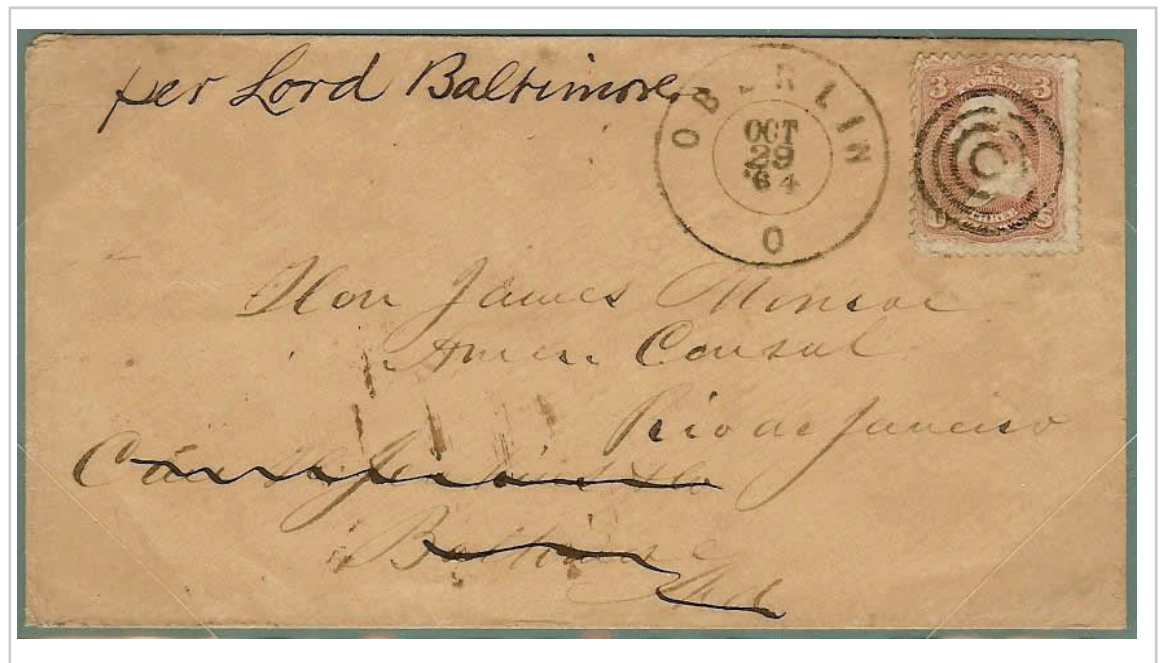 per Lord Baltimore
OBERLIN
OCT
29
'64
O
3 U.S. 3
Hon James Monroe
Amer. Consul
Rio de Janeiro
Care
Baltimore
Md